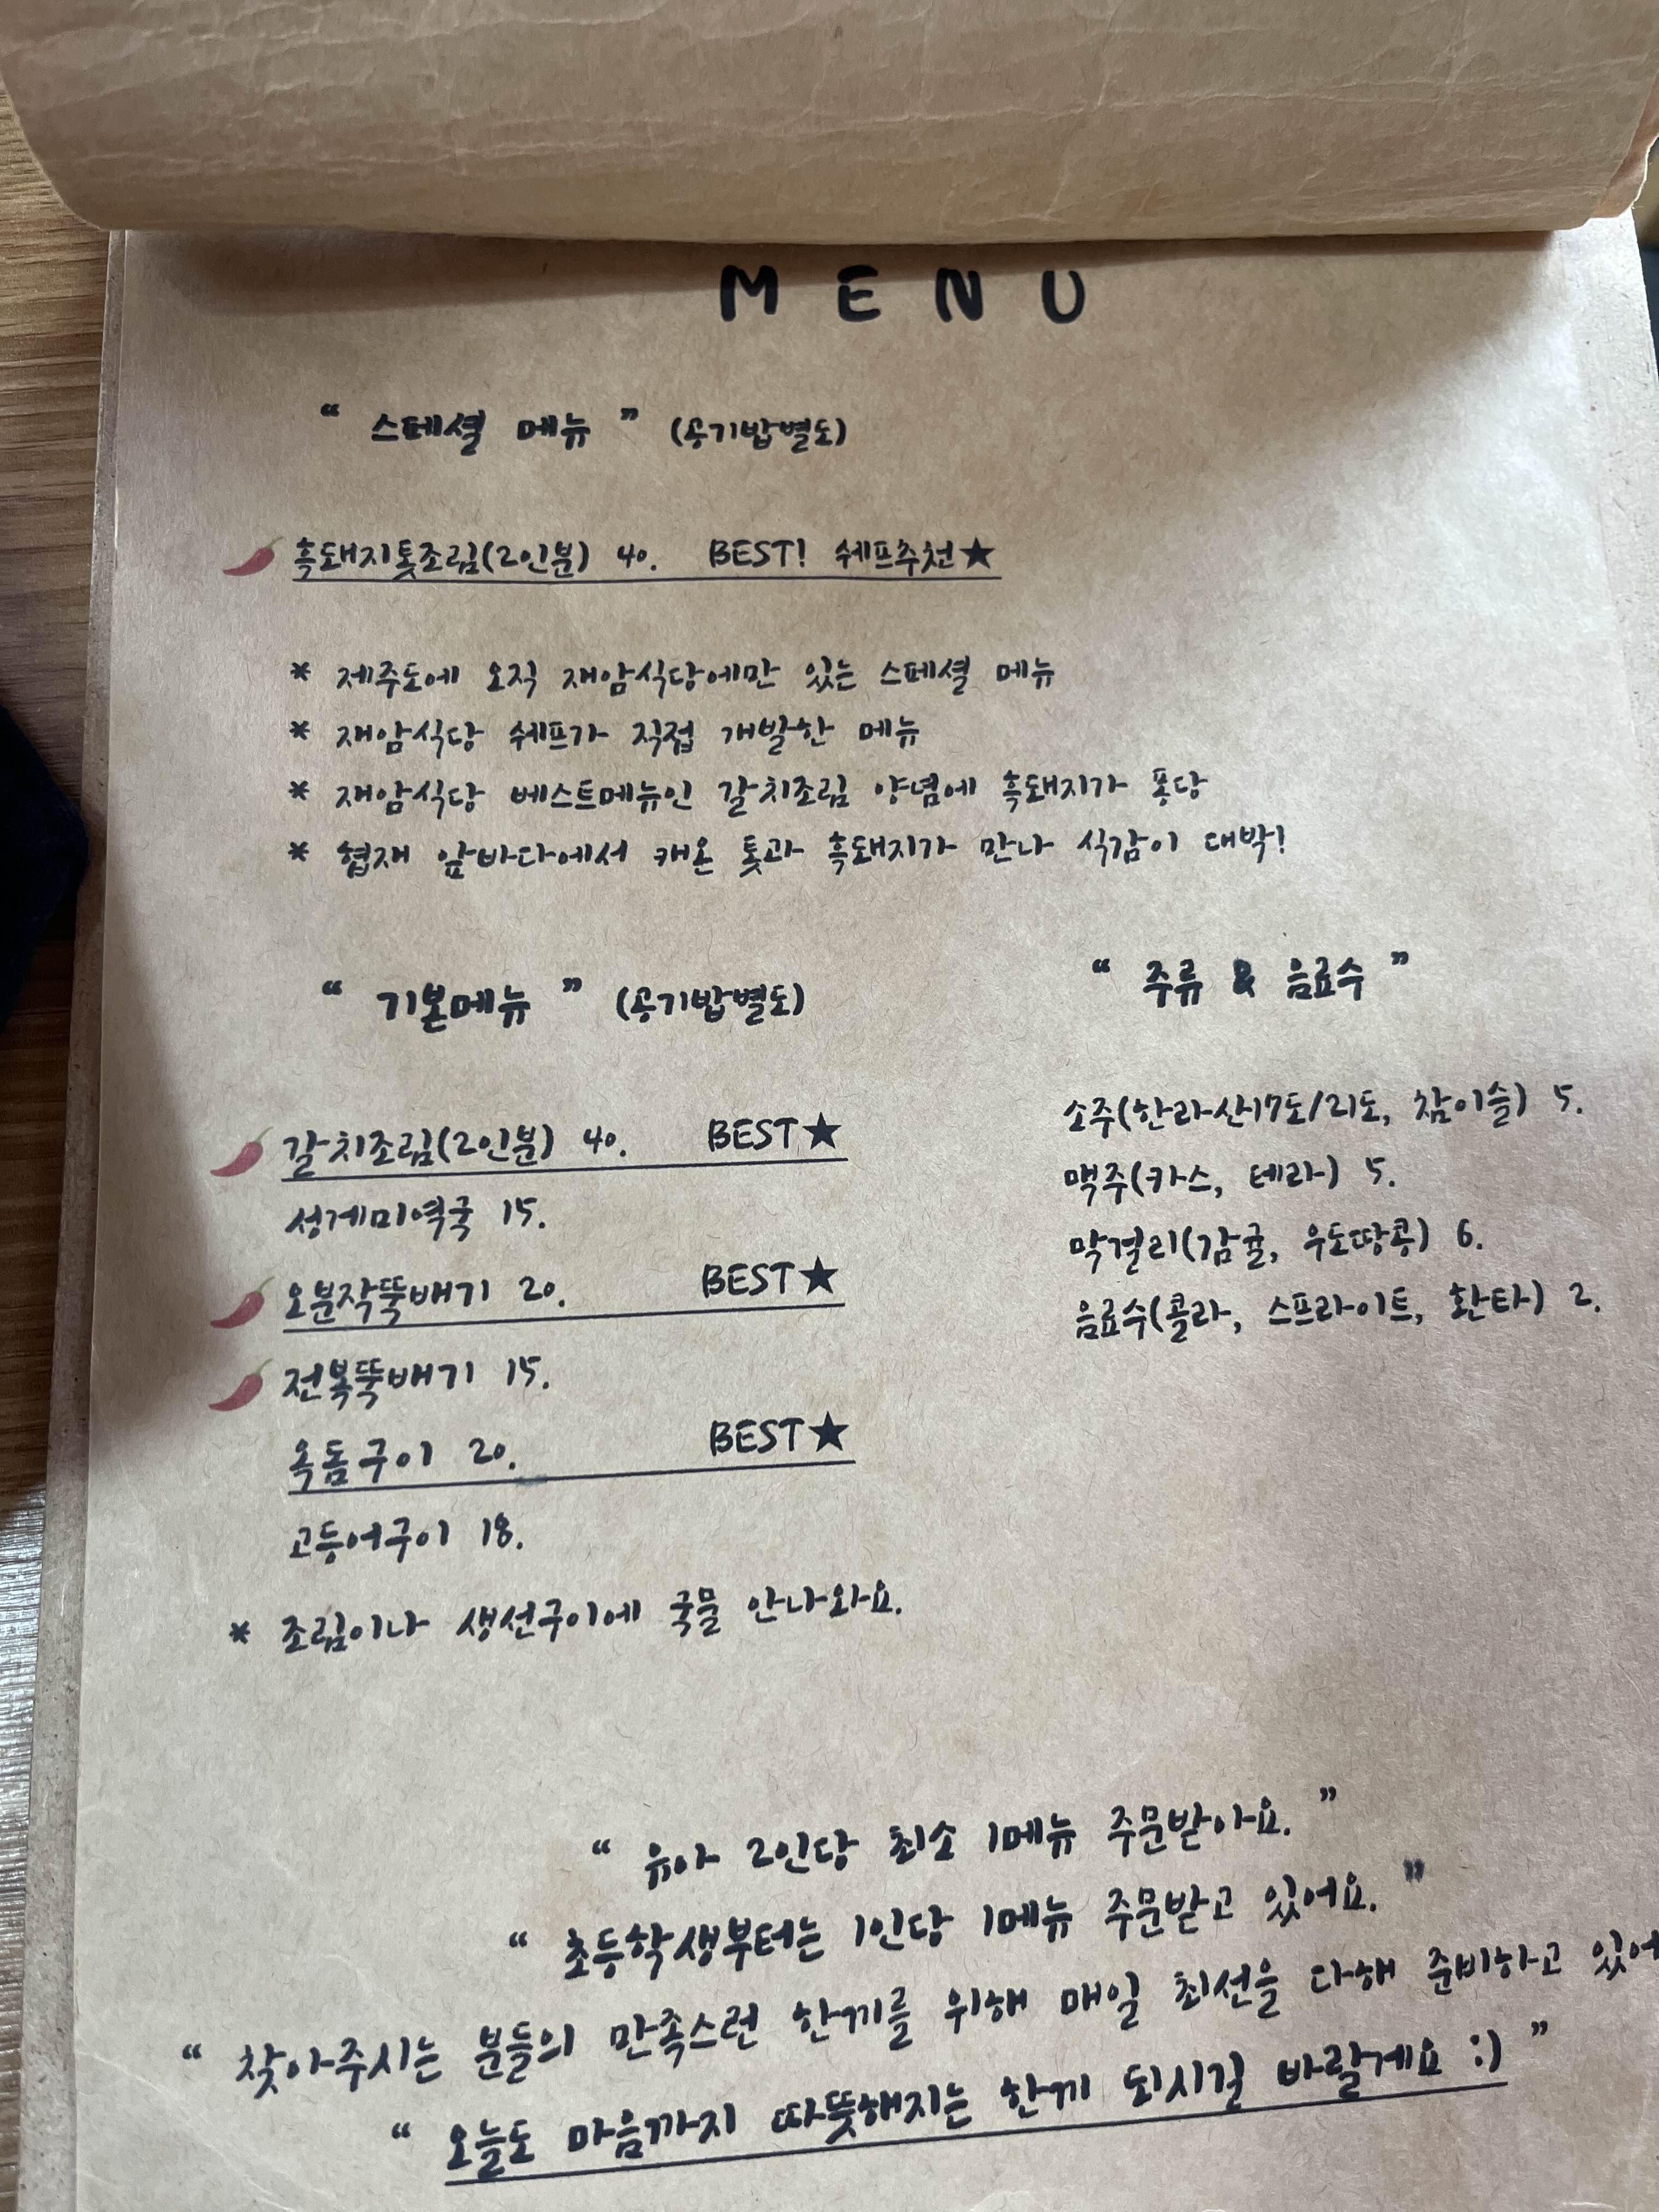 MENU
“ 스페셜 메뉴 ” (공기밥별도)
흑돼지톳조림(2인분) 40. BEST! 쉐프추천★
* 제주도에 오직 재암식당에만 있는 스페셜 메뉴
* 재암식당 쉐프가 직접 개발한 메뉴
* 재암식당 베스트메뉴인 갈치조림 양념에 흑돼지가 퐁당
* 협재 앞바다에서 캐온 톳과 흑돼지가 만나 식감이 대박!
“ 기본메뉴 ” (공기밥별도)
갈치조림(2인분) 40. BEST★
성게미역국 15.
오분작뚝배기 20. BEST★
전복뚝배기 15.
옥돔구이 20. BEST★
고등어구이 18.
* 조림이나 생선구이에 국물 안나와요.
“ 주류 & 음료수 ”
소주(한라산17도/21도, 참이슬) 5.
맥주(카스, 테라) 5.
막걸리(감귤, 우도땅콩) 6.
음료수(콜라, 스프라이트, 환타) 2.
“ 유아 2인당 최소 1메뉴 주문받아요. ”
“ 초등학생부터는 1인당 1메뉴 주문받고 있어요. ”
“ 찾아주시는 분들의 만족스런 한끼를 위해 매일 최선을 다해 준비하고 있어
“ 오늘도 마음까지 따뜻해지는 한끼 되시길 바랄게요 :) ”